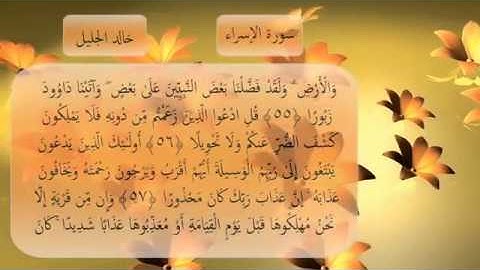 سورة الإسراء
خالد الجليل
وَالْأَرْضِ ۗ وَلَقَدْ فَضَّلْنَا بَعْضَ النَّبِيِّينَ عَلَىٰ بَعْضٍ ۖ وَآتَيْنَا دَاوُودَ
زَبُورًا ﴿٥٥﴾ قُلِ ادْعُوا الَّذِينَ زَعَمْتُم مِّن دُونِهِ فَلَا يَمْلِكُونَ
كَشْفَ الضُّرِّ عَنكُمْ وَلَا تَحْوِيلًا ﴿٥٦﴾ أُولَٰئِكَ الَّذِينَ يَدْعُونَ
يَبْتَغُونَ إِلَىٰ رَبِّهِمُ الْوَسِيلَةَ أَيُّهُمْ أَقْرَبُ وَيَرْجُونَ رَحْمَتَهُ وَيَخَافُونَ
عَذَابَهُ ۚ إِنَّ عَذَابَ رَبِّكَ كَانَ مَحْذُورًا ﴿٥٧﴾ وَإِن مِّن قَرْيَةٍ إِلَّا
نَحْنُ مُهْلِكُوهَا قَبْلَ يَوْمِ الْقِيَامَةِ أَوْ مُعَذِّبُوهَا عَذَابًا شَدِيدًا ۚ كَانَ